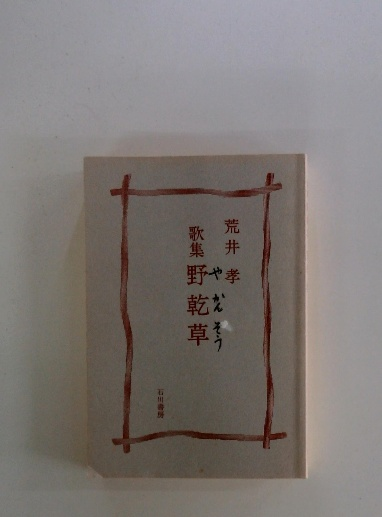 荒井孝
歌集 野乾草
やかんそう
石川書房